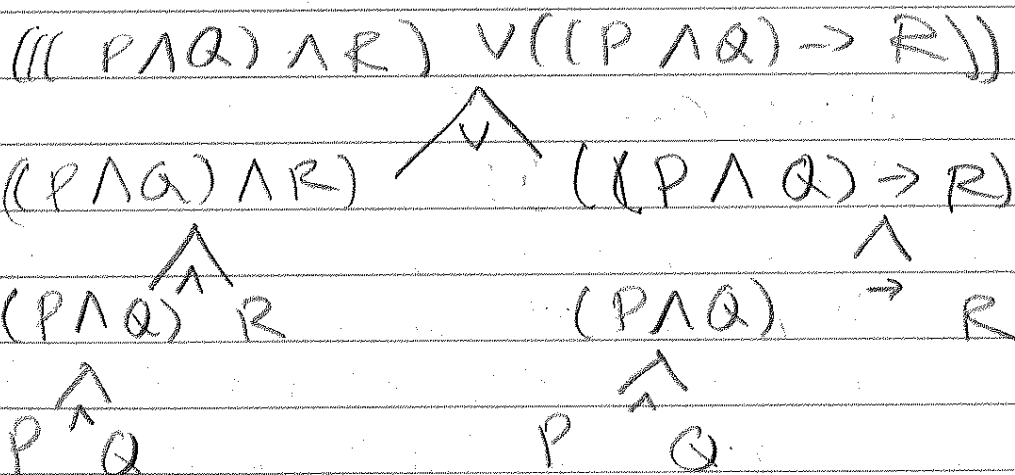 ((( P∧Q) ∧R) ∨((P ∧Q)-> R))
∨
((P∧Q)∧R) ((P∧Q)→R)
∧ →
(P∧Q) R (P∧Q) R
∧ ∧
P Q P Q